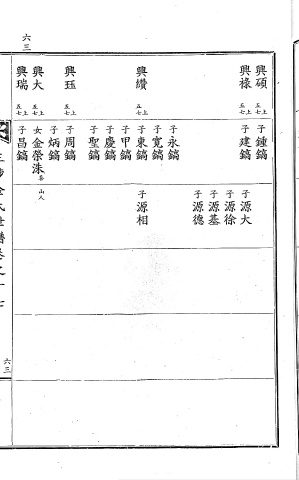 六三
興碩 五七上 子鍾鎬
興祿 五七上 子建鎬 子源大
子源徐
子源基
子源德
子永鎬
子寬鎬
興纘 五七上 子東鎬 子源相
子甲鎬
子慶鎬
子聖鎬
興珏 五七上 子周鎬
子炳鎬
興大 五七上 女金榮洙 山人
興瑞 五七上 子昌鎬
金氏世譜卷之十七
六三